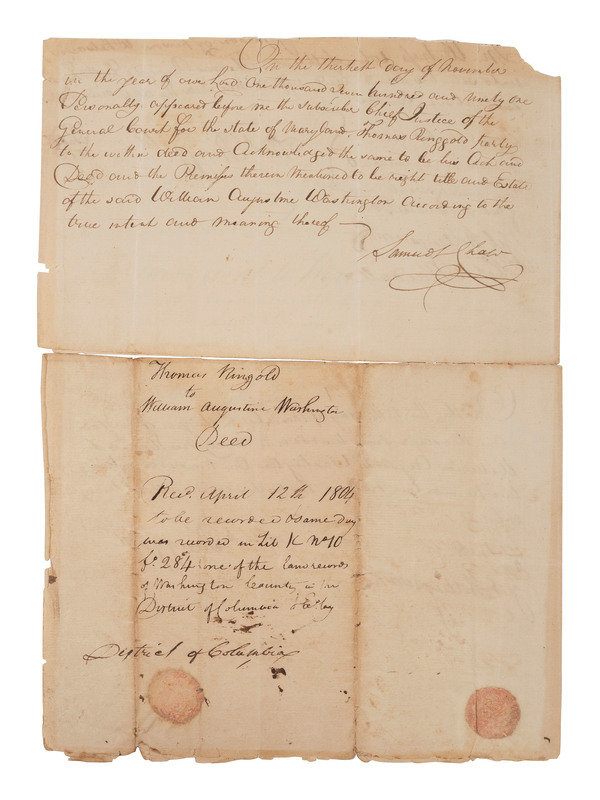 On the thirtieth day of November
in the year of our Lord One thousand seven hundred and ninety one
Personally appeared before me the subscriber Chief Justice of the
General Court for the state of Maryland, Thomas Ringgold party
to the within deed and Acknowledged the same to be his Act and
Deed and the Premises therein Mentioned to be right title and Estate
of the said William Augustine Washington according to the
true intent and meaning thereof
Samuel Chase
Thomas Ringold
to
William Augustine Washington
Deed
Recd. April 12th 1804
to be recorded & same day
was recorded in Lib K No 10
fo. 284 one of the land records
of Washington County in the
District of Columbia
District of Columbia